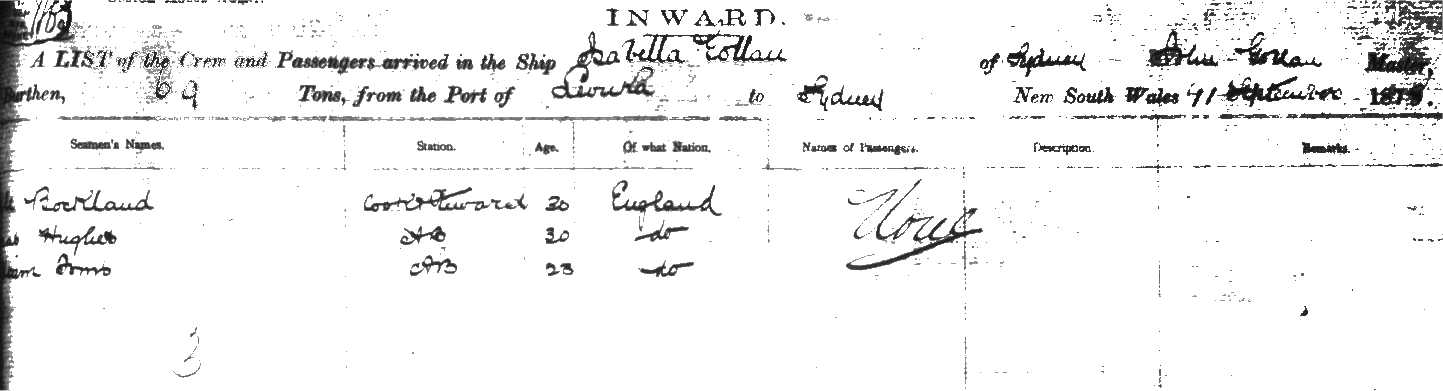 INWARD.
A LIST of the Crew and Passengers arrived in the Ship Isabella Gollan of Sydney John Gollan Master,
Burthen, 69 Tons, from the Port of Levuka to Sydney New South Wales September 187
Seamen's Names. Station. Age. Of what Nation. Names of Passengers. Description. Remarks.
Bockland Cook & Steward 30 England None
Hughes AB 30 do
Toms AB 23 do
3